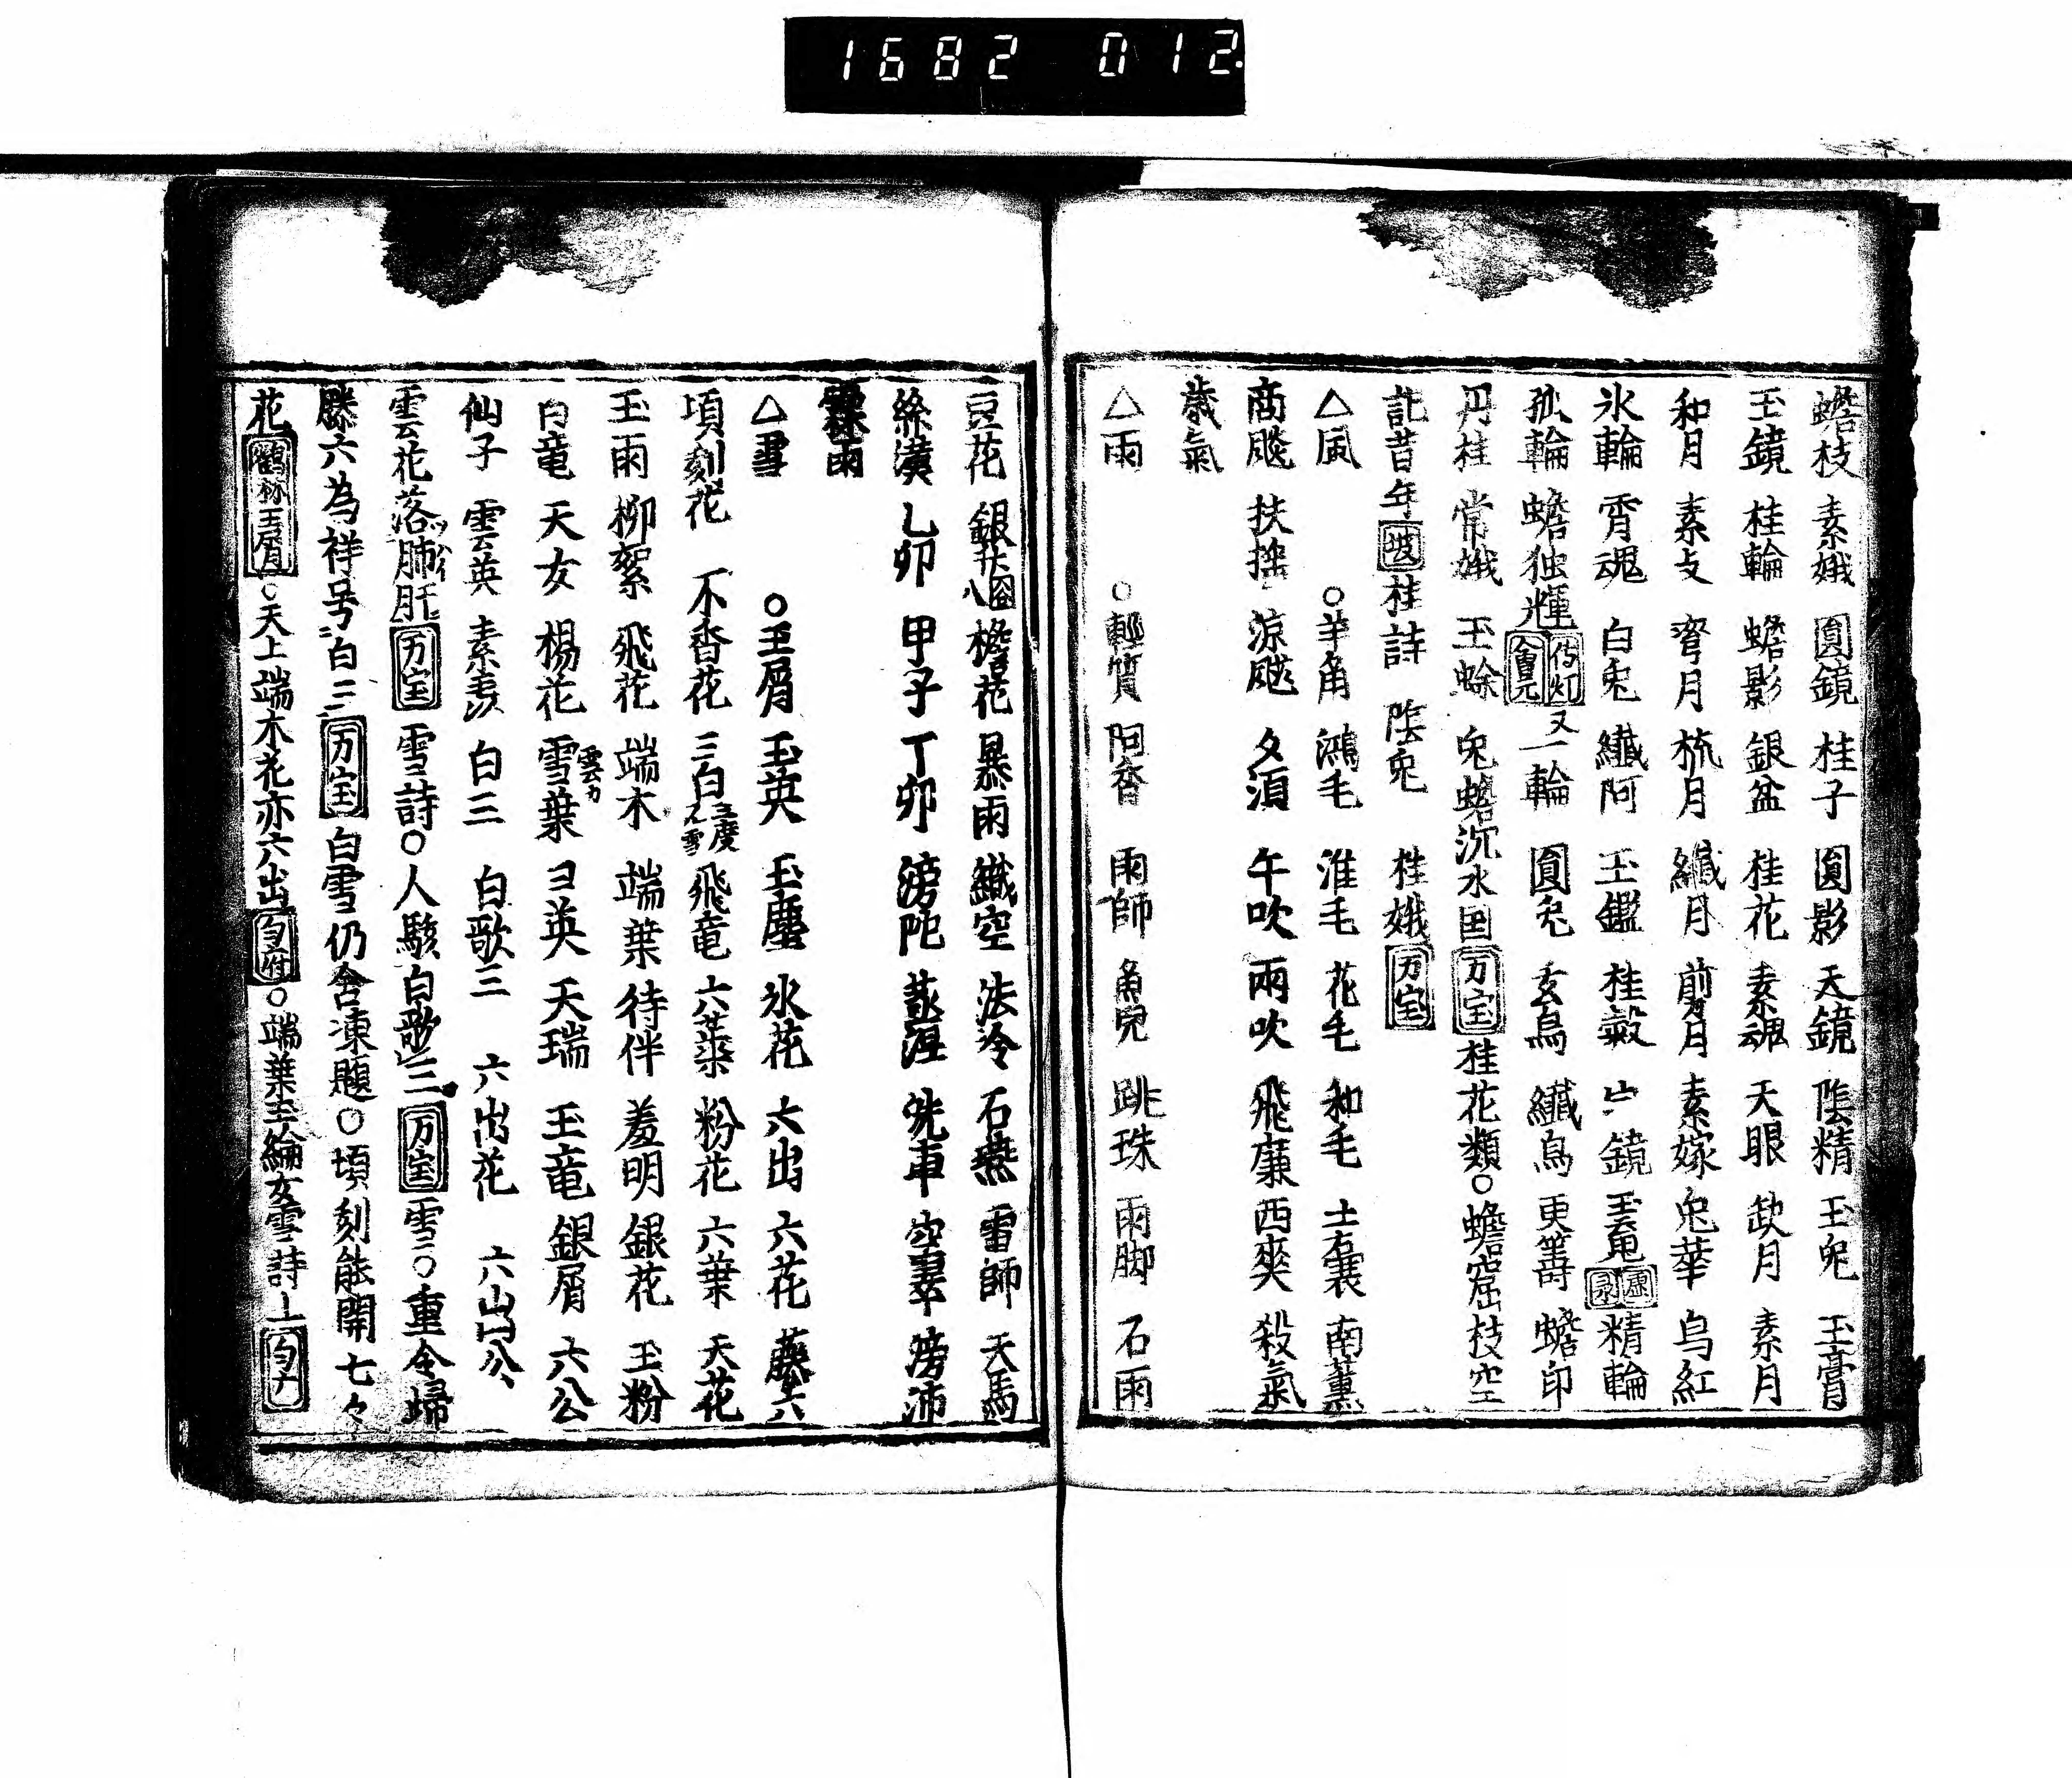 1682 012.
蟾枝 素娥 圓鏡 桂子 圓影 天鏡 陰精 玉兔 玉膏
玉鏡 桂輪 蟾影 銀盆 桂花 素魂 天眼 欽月 素月
和月 素攴 弯月 梳月 纖月 剪月 素嫁 兔華 烏紅
氷輪 霄魂 白兔 纖阿 玉鑑 桂 鏡 玉 精輪
孤輪 蟾独輝 傳灯 會元 又一輪 圓兔 玄烏 纖烏 更 蟾印
丹桂 常娥 玉蜍 兔蟾沉水国 万宝 桂花類○蟾窟枝空
記昔年 坡 桂詩 陰兔 桂娥 万宝
△風 ○羊角 鴻毛 淮毛 花毛 和毛 土囊 南薫
商飈 扶搖 涼颸 夕須 午吹 兩吹 飛廉 西爽 殺氣
歳氣
△雨 ○輕質 阿香 雨師 魚児 跳珠 雨脚 石雨
豆花 銀 檐花 暴雨 纖空 法冷 石燕 雷師 天馬
絲潢 乙卯 甲子 丁卯 滂陀 洗車 滂沛
霖雨
△雪 ○玉屑 玉英 玉塵 氷花 六出 六花 藤六
頃刻花 不香花 三白 三度 飛竜 六葉 粉花 六葉 天花
玉雨 柳絮 飛花 端木 端葉 待伴 羞明 銀花 玉粉
白竜 天女 楊花 雪葉 雲カ ヨ英 天瑞 玉竜 銀屑 六公
仙子 雲英 素 白三 白歌三 六出花 六出公
雲花落肺肝 万宝 雪詩○人駭白歌三 万宝 雪○重令婦
滕六為祥号白三 万宝 白雪仍含凍 ○頃刻能開七々
花 鶴林玉屑 ○天上端木花亦六出 ○端葉玉綸女雲詩上